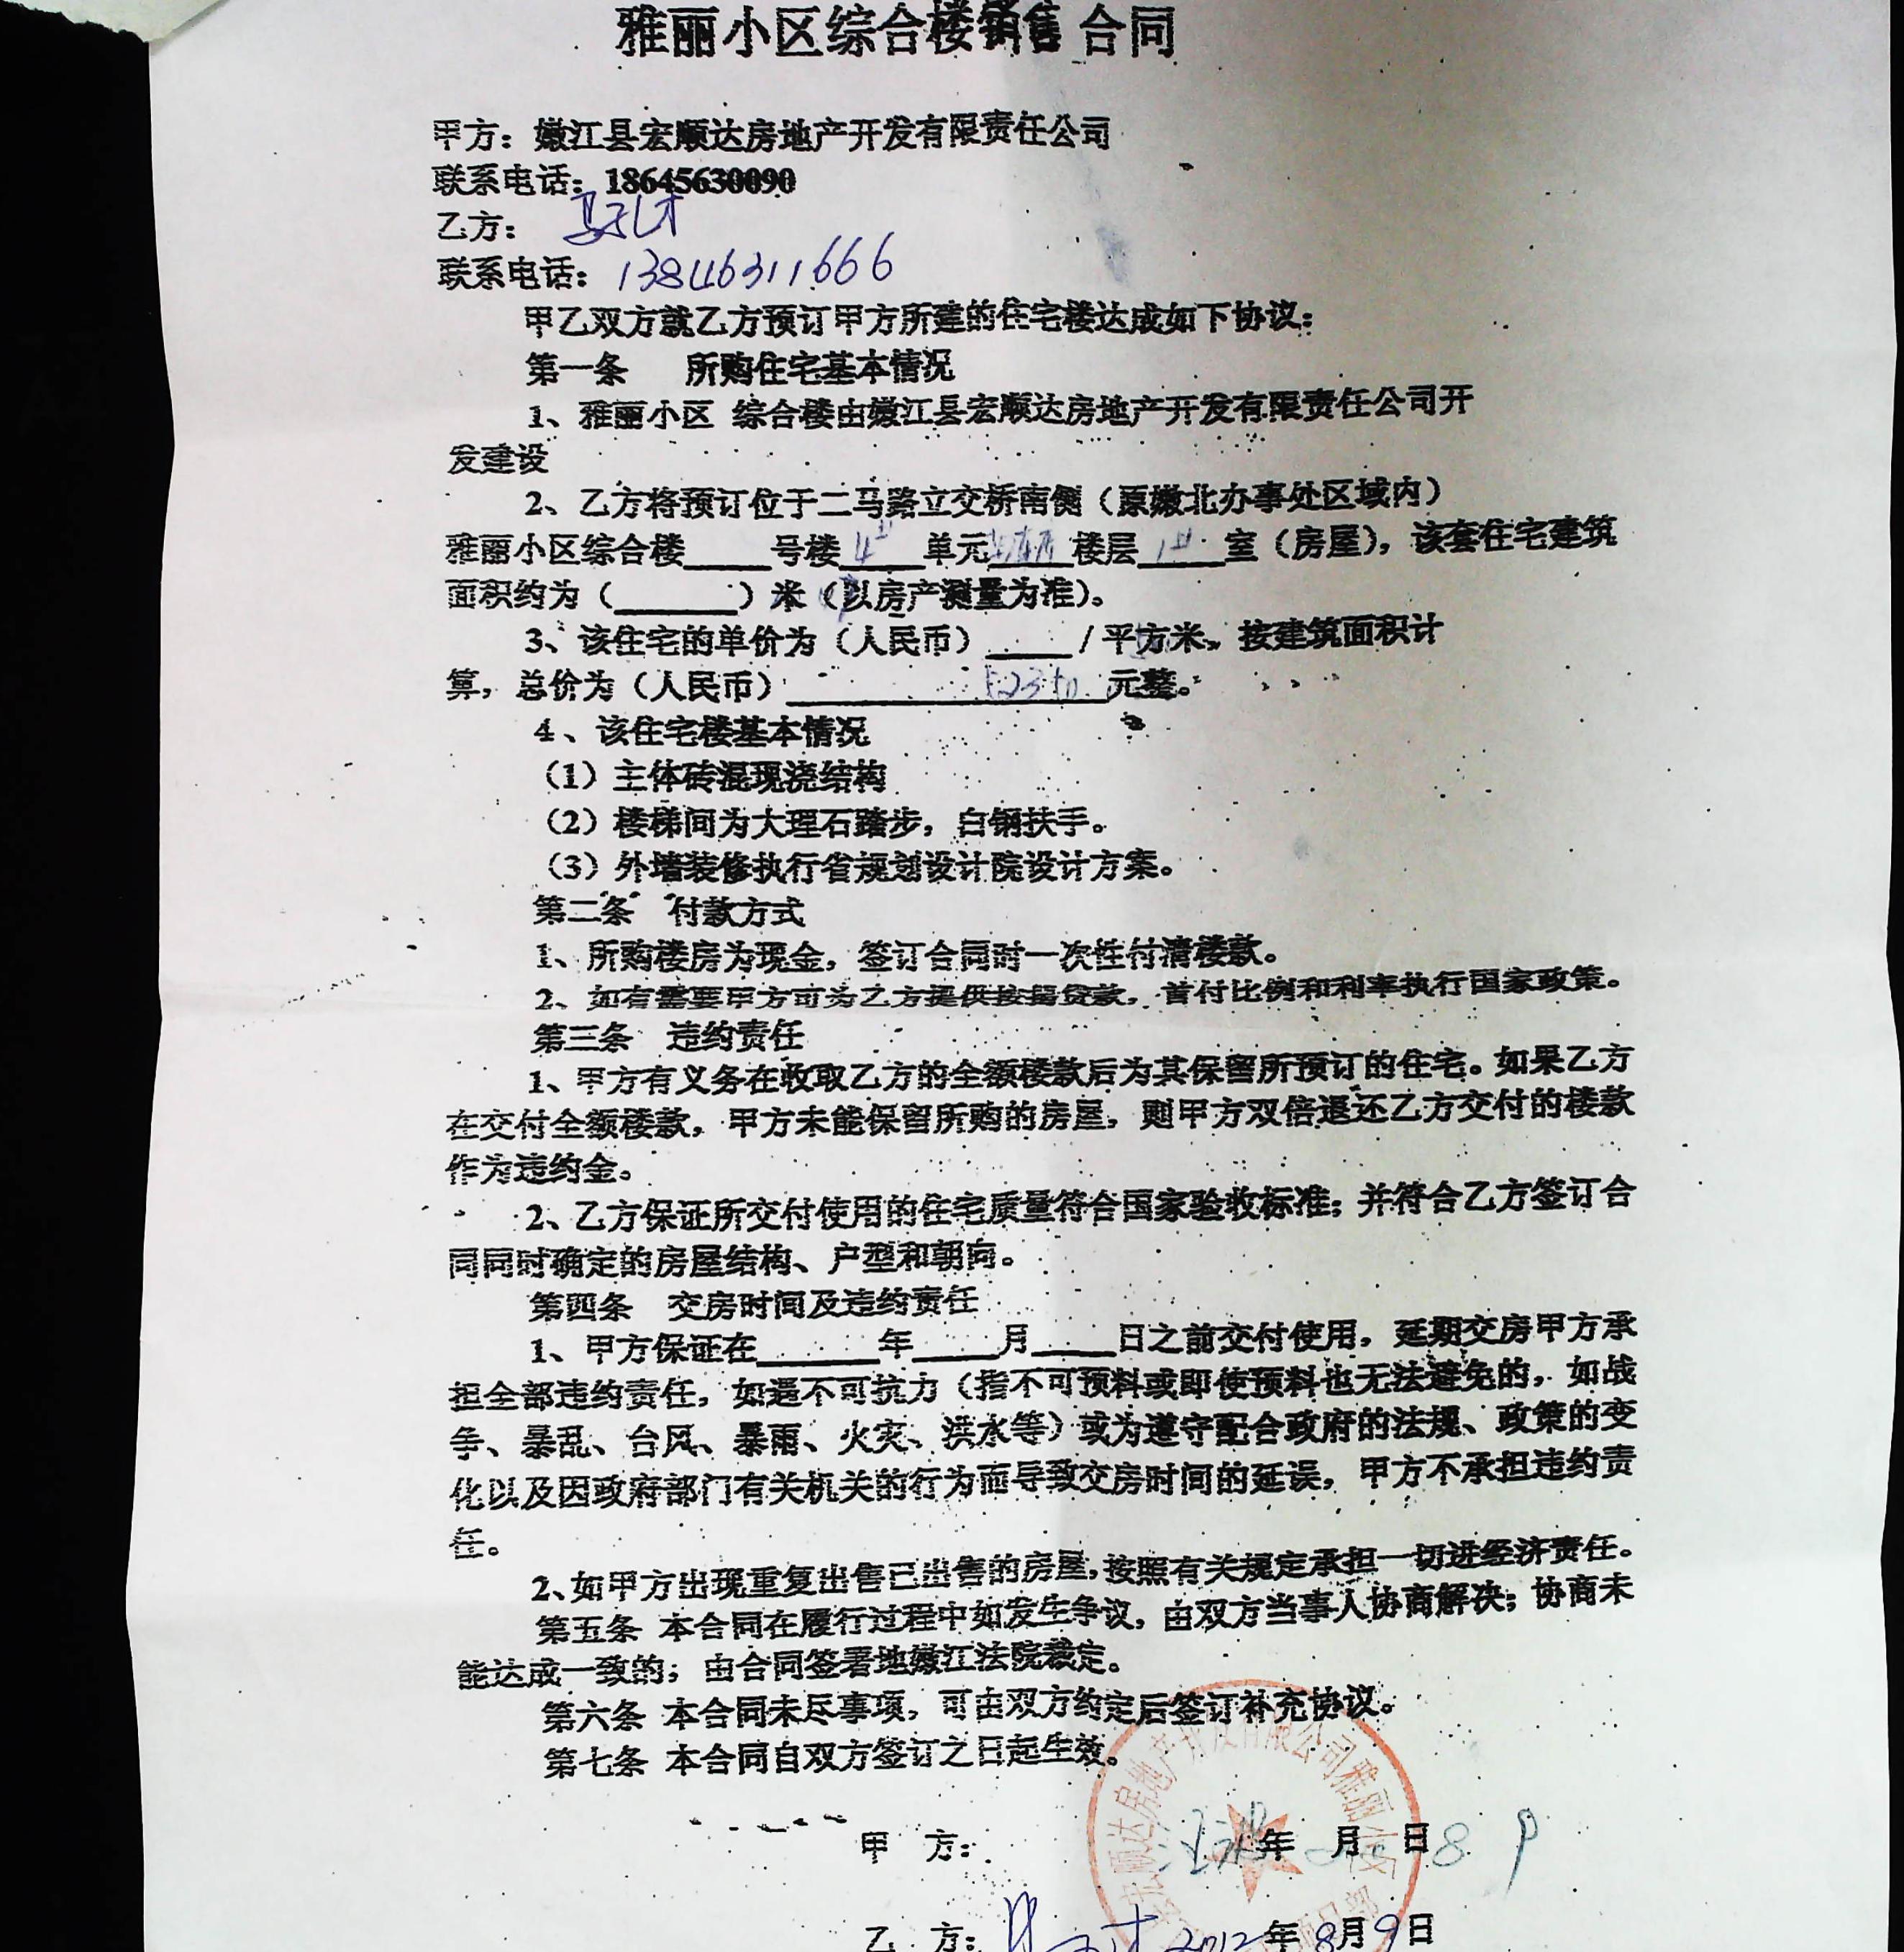 雅丽小区综合楼销售合同
甲方：嫩江县宏顺达房地产开发有限责任公司
联系电话：18645630090
乙方：
联系电话：13846311666
甲乙双方就乙方预订甲方所建的住宅楼达成如下协议：
第一条 所购住宅基本情况
1、雅丽小区 综合楼由嫩江县宏顺达房地产开发有限责任公司开
发建设
2、乙方将预订位于二马路立交桥南侧（原嫩北办事处区域内）
雅丽小区综合楼____号楼 4# 单元 楼层 1# 室（房屋），该套住宅建筑
面积约为（______）米（以房产测量为准）。
3、该住宅的单价为（人民币）____/平方米，按建筑面积计
算，总价为（人民币） 元整。
4、该住宅楼基本情况
（1）主体砖混现浇结构
（2）楼梯间为大理石踏步，白钢扶手。
（3）外墙装修执行省规划设计院设计方案。
第二条 付款方式
1、所购楼房为现金，签订合同时一次性付清楼款。
2、如有需要甲方可为乙方提供按揭贷款，首付比例和利率执行国家政策。
第三条 违约责任
1、甲方有义务在收取乙方的全额楼款后为其保留所预订的住宅。如果乙方
在交付全额楼款，甲方未能保留所购的房屋，则甲方双倍退还乙方交付的楼款
作为违约金。
2、乙方保证所交付使用的住宅质量符合国家验收标准；并符合乙方签订合
同同时确定的房屋结构、户型和朝向。
第四条 交房时间及违约责任
1、甲方保证在______年____月____日之前交付使用，延期交房甲方承
担全部违约责任，如遇不可抗力（指不可预料或即使预料也无法避免的，如战
争、暴乱、台风、暴雨、火灾、洪水等）或为遵守配合政府的法规、政策的变
化以及因政府部门有关机关的行为而导致交房时间的延误，甲方不承担违约责
任。
2、如甲方出现重复出售已出售的房屋，按照有关规定承担一切进经济责任。
第五条 本合同在履行过程中如发生争议，由双方当事人协商解决；协商未
能达成一致的；由合同签署地嫩江法院裁定。
第六条 本合同未尽事项，可由双方约定后签订补充协议。
第七条 本合同自双方签订之日起生效。
宏顺达房地产开发有限公司雅丽小区
甲 方： 年 月 日 8
乙 方： 2012年8月9日